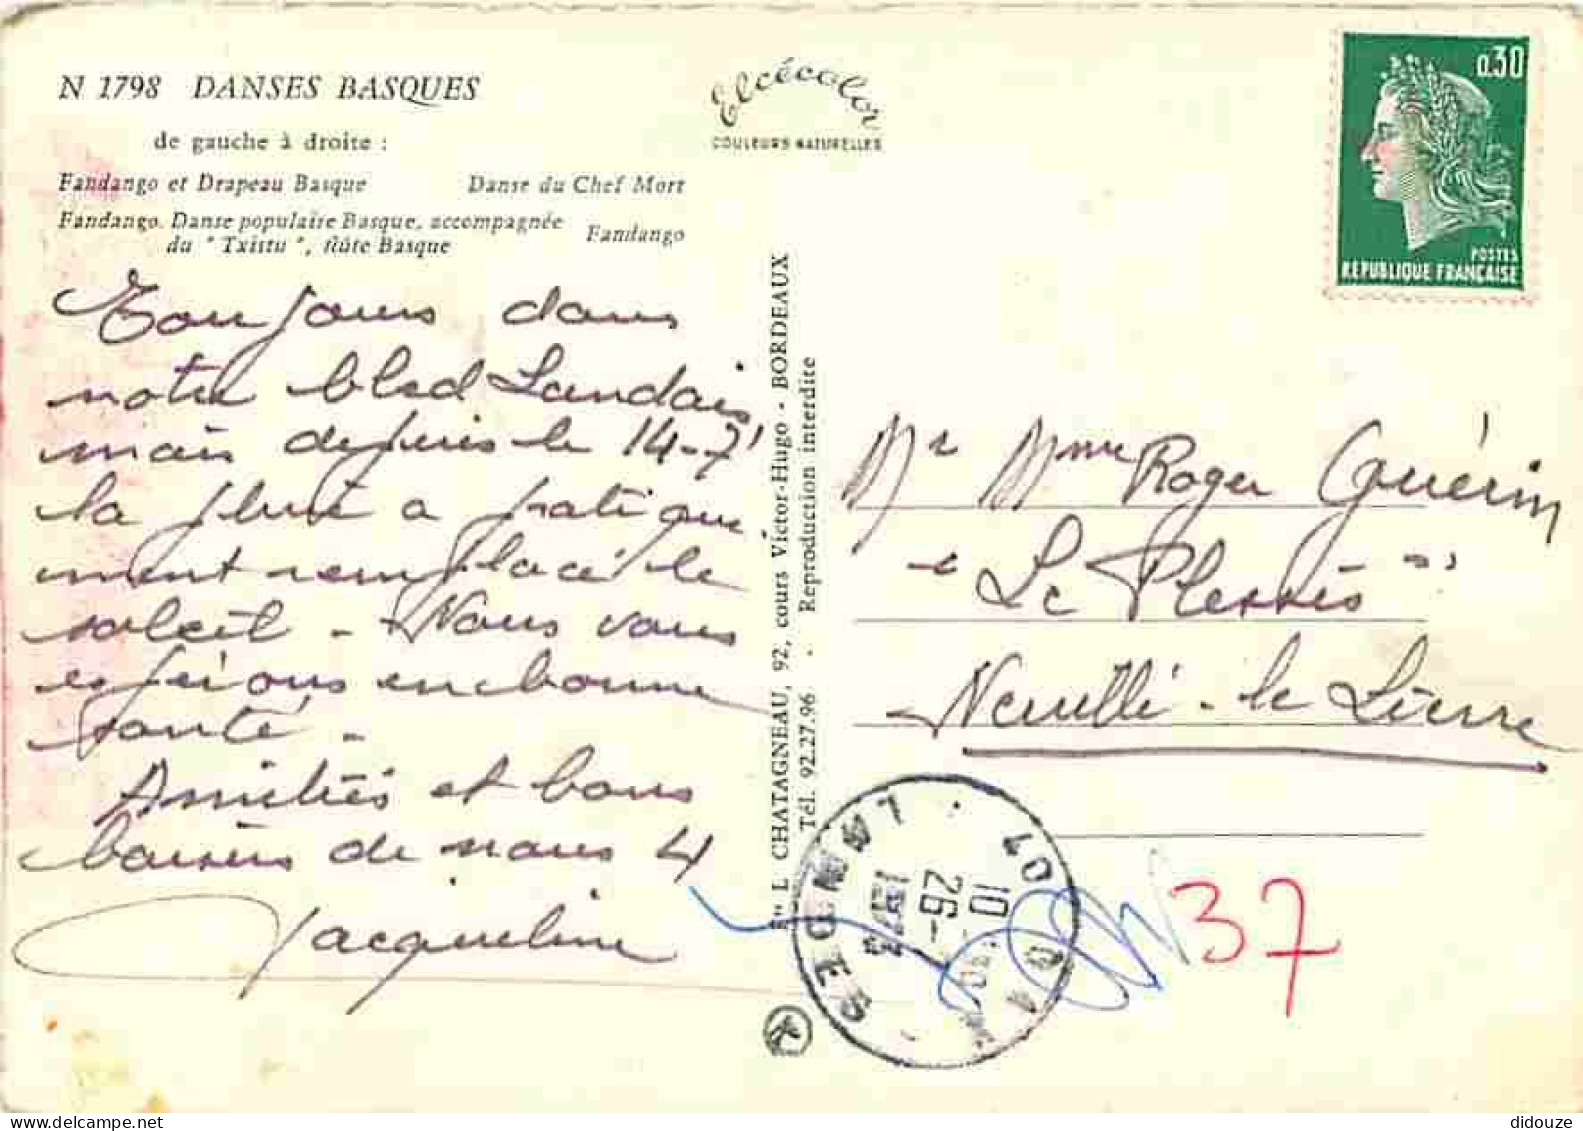 N 1798 DANSES BASQUES
de gauche à droite :
Fandango et Drapeau Basque
Danse du Chef Mort
Fandango. Danse populaire Basque, accompagnée
du " Txistu ", flûte Basque
Fandango
Elcécolor
COULEURS NATURELLES
0,30
POSTES
REPUBLIQUE FRANCAISE
Toujours dans
notre bled Landais
mais depuis le 14-7
la pluie a pratique
ment remplacé le
soleil - Nous vous
espérons en bonne
santé -
Amitiés et bons
baisers de nous 4
Jacqueline
Ets L CHATAGNEAU, 92, cours Victor-Hugo - BORDEAUX
Tél. 92.27.96 . Reproduction interdite
Mr Mme Roger Guérin
" Le Plessis "
Neuillé - le Lierre
40
10
26-
SEIGNOSSE
37
www.delcampe.net
didouze